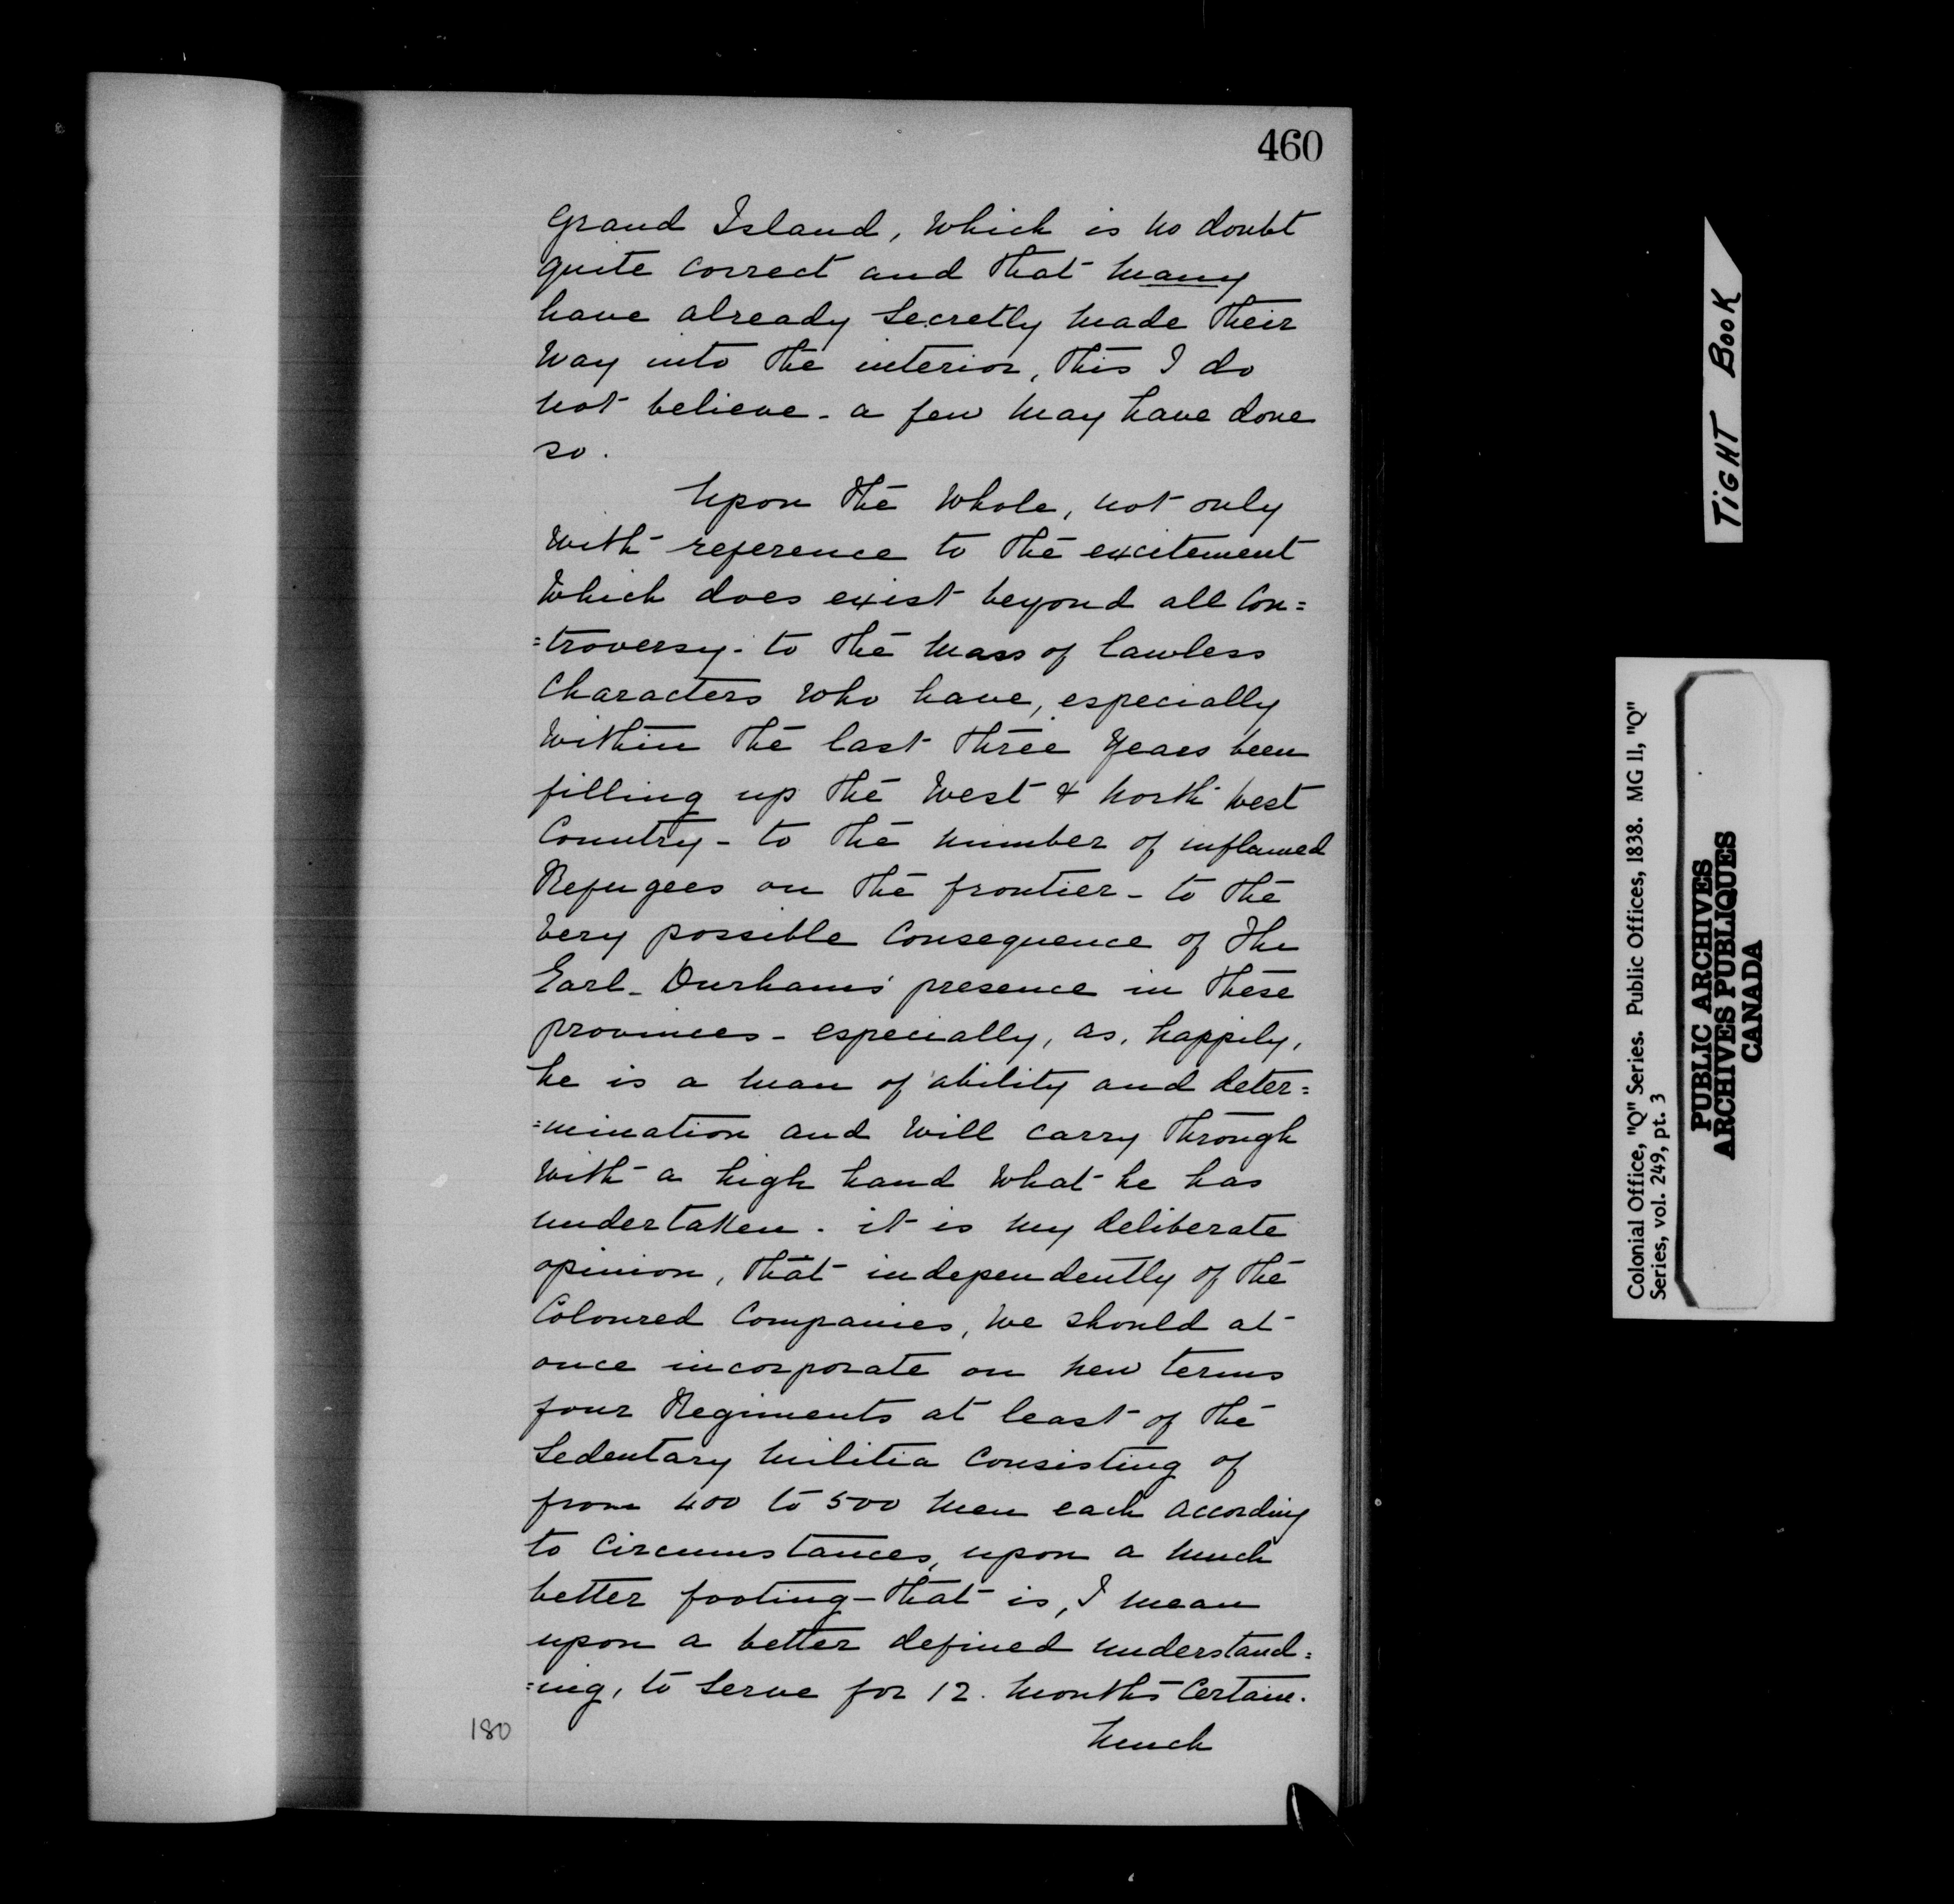 460
Grand Island, which is no doubt
quite correct and that many
have already secretly made their
way into the interior, this I do
not believe - a few may have done
so.
Upon the whole, not only
with reference to the excitement
which does exist beyond all con=
=troversy - to the mass of lawless
characters who have, especially
within the last three years been
filling up the West & North West
Country - to the number of inflamed
Refugees on the frontier - to the
very possible consequence of the
Earl - Durham's presence in these
provinces - especially, as, happily,
he is a man of ability and deter=
=mination and will carry through
with a high hand what he has
undertaken. it is my deliberate
opinion, that independently of the
Coloured Companies, we should at
once incorporate on new terms
four Regiments at least of the
Sedentary Militia consisting of
from 400 to 500 men each according
to circumstances, upon a much
better footing - that is, I mean
upon a better defined understand=
=ing, to serve for 12. months certain.
180
Much
TIGHT BOOK
Colonial Office, "Q" Series. Public Offices, 1838. MG 11, "Q"
Series, vol. 249, pt. 3
PUBLIC ARCHIVES
ARCHIVES PUBLIQUES
CANADA